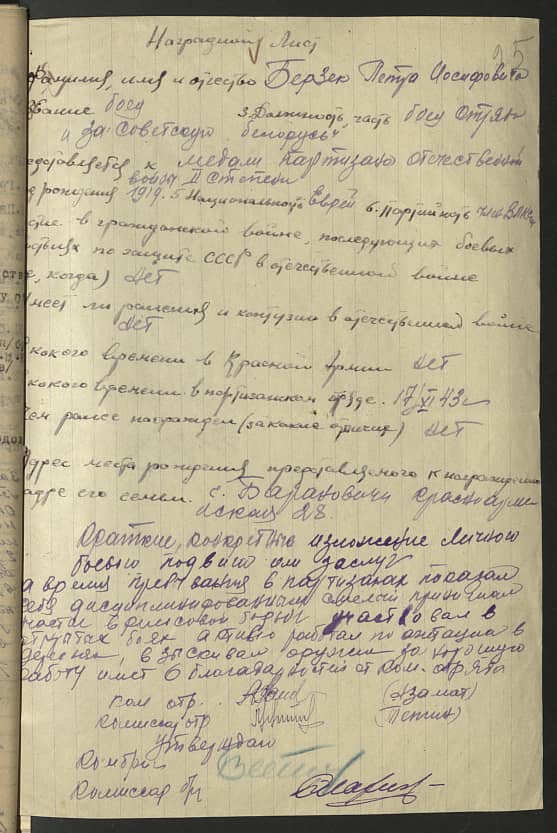 25
Наградной Лист
Фамилия, имя и отчество Берзек Петра Иосифовича
звание боец 3. Должность, часть боец отряд
и за Советскую Белорусь"
редставляется к медали партизана отечественной
войны II степени
д рождения 1919. 5 Национальность Еврей 6. Партийность член ВЛКСМ
в гражданской войне, последующих боевых
ствиях по защите СССР в отечественной войне
е, когда) Нет
меет ли ранения и контузии в отечественной войне
Нет
какого времени в Красной Армии Нет
какого времени в партизанском отряде. 17/XI 43 г
ем ранее награжден (за какие отличия) Нет
Адрес места рождения представляемого к награждению
адре его семьи. г. Барановичи Красноарме
йская 28.
Краткие, конкретные изложение личного
боевого подвига или заслуг
а время пребывания в партизанах показал
себя дисциплинированным смелый принимал
участие в рельсовой войне участвовал в
открытых боях активно работал по агитации в
деревнях, взыскивал оружие за хорошую
работу имеет 6 благодарностей от ком. отряда
ком отр. (Азамат)
Комиссар отр
Утверждаю
Комбриг
Комиссар бр